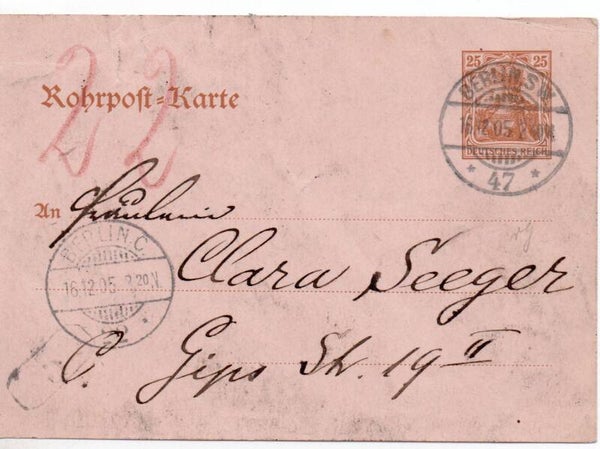 22
25 25
Rohrpost-Karte
DEUTSCHES REICH
BERLIN.S.W.
16.12.05
* 47 *
An Fräulein
BERLIN.C.
16.12.05. 2.20N.
Clara Seeger
C. Gips Str. 19 II